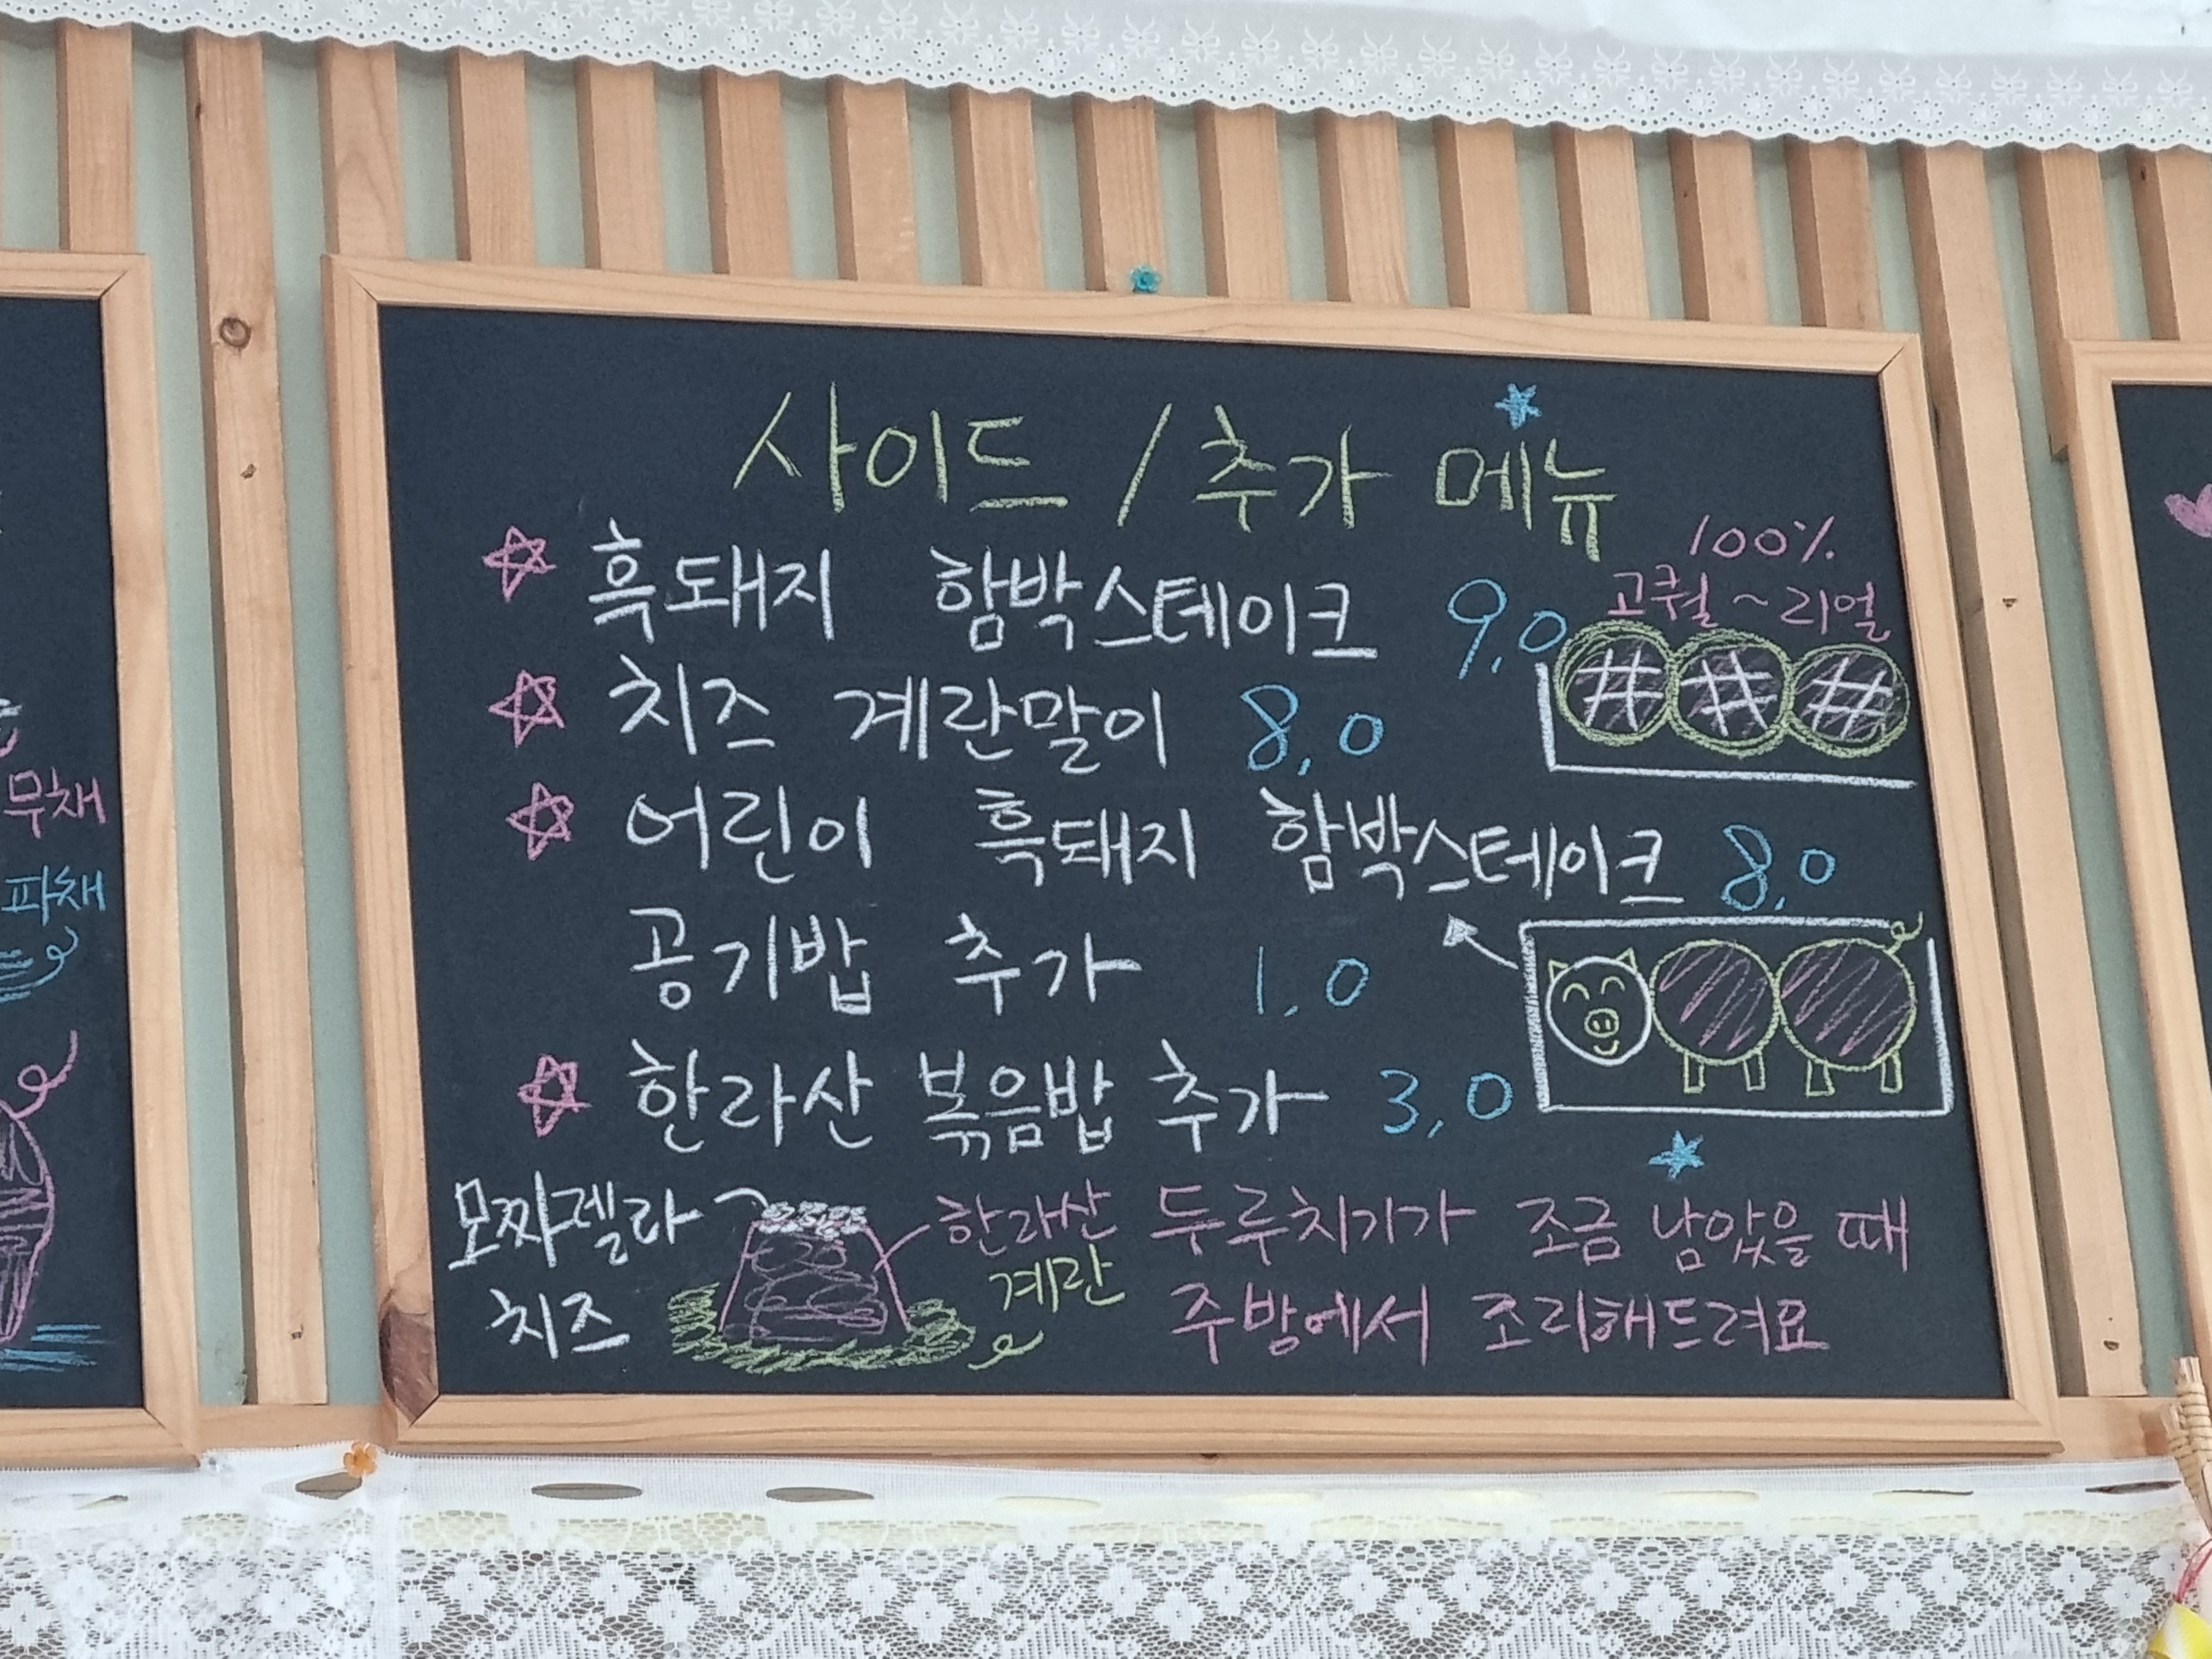 사이드 / 추가 메뉴
흑돼지 함박스테이크 9,0
100%
고퀄~리얼
치즈 계란말이 8,0
어린이 흑돼지 함박스테이크 8,0
공기밥 추가 1,0
한라산 볶음밥 추가 3,0
모짜렐라
치즈
한라산
계란
두루치기가 조금 남았을 때
주방에서 조리해드려요
무채
파채